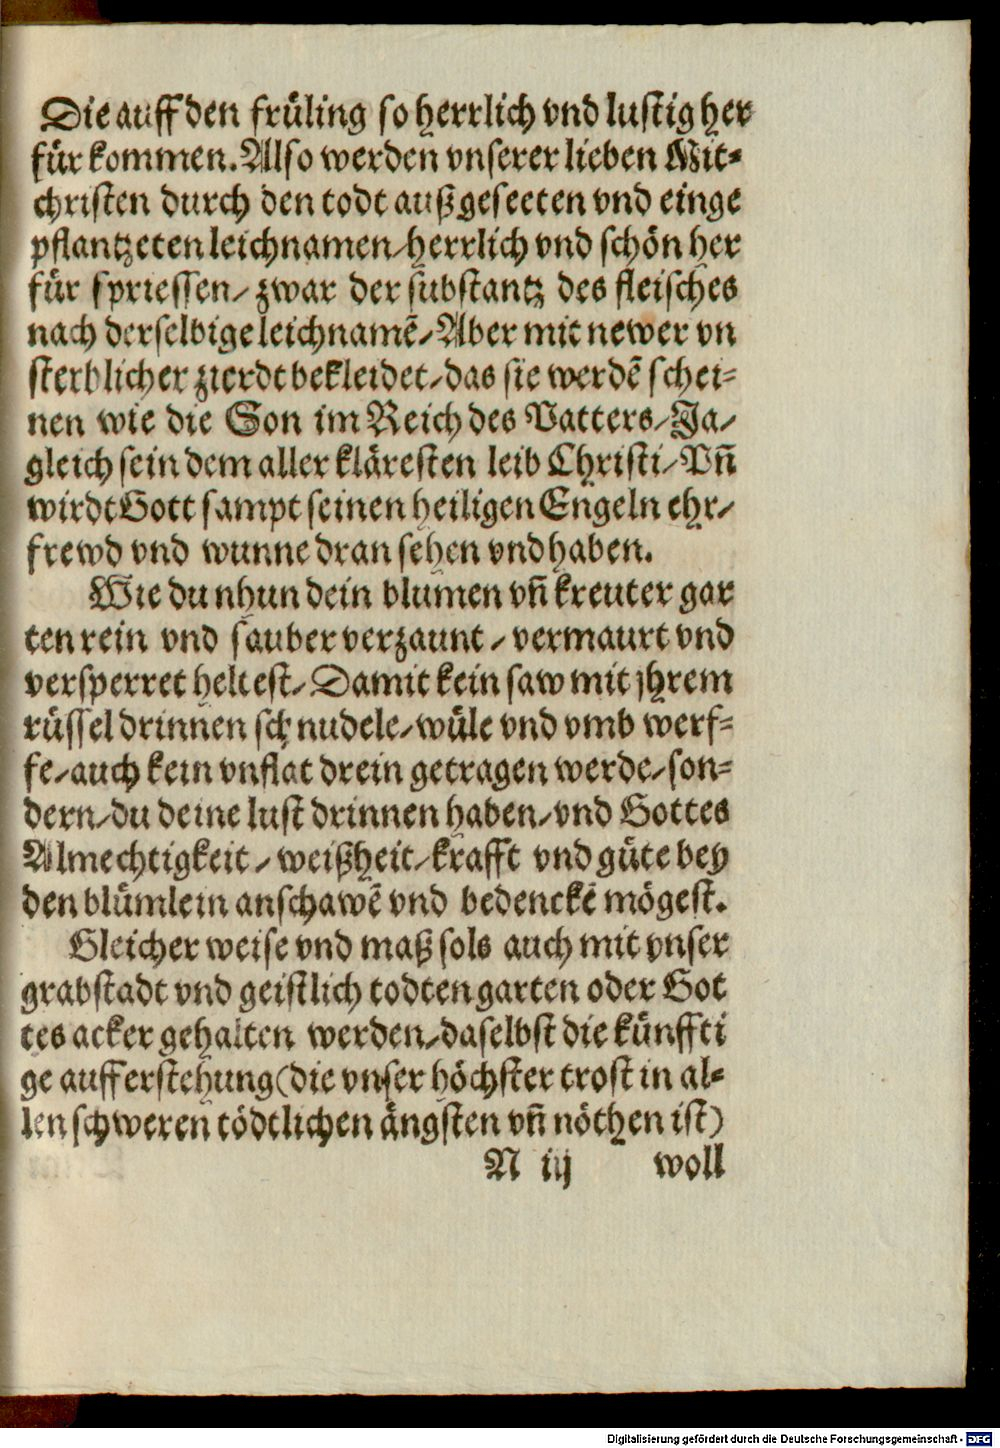 Die auff den früling so herrlich vnd lustig her
für kommen. Also werden vnserer lieben Mit⸗
christen durch den todt außgeseeten vnd einge
pflantzeten leichnamen/ herrlich vnd schön her
für spriessen/ zwar der substantz des fleisches
nach derselbige leichnamē/ Aber mit newer vn
sterblicher zierdt bekleidet/ das sie werdē schei⸗
nen wie die Son im Reich des Vatters/ Ja/
gleich sein dem aller kläresten leib Christi/ Vñ
wirdt Gott sampt seinen heiligen Engeln ehr/
frewd vnd wunne dran sehen vnd haben.
Wie du nhun dein blumen vñ kreuter gar
ten rein vnd sauber verzaunt/ vermaurt vnd
versperret heltest/ Damit kein saw mit jhrem
rüssel drinnen schnudele/ wüle vnd vmb werf⸗
fe/ auch kein vnflat drein getragen werde/ son⸗
dern/ du deine lust drinnen haben/ vnd Gottes
Almechtigkeit/ weißheit/ krafft vnd güte bey
den blümlein anschawē vnd bedenckē mögest.
Gleicher weise vnd maß sols auch mit vnser
grabstadt vnd geistlich todten garten oder Got
tes acker gehalten werden/ daselbst die künffti
ge aufferstehung (die vnser höchster trost in al⸗
len schweren tödtlichen ängsten vñ nöthen ist)
N iij woll
Digitalisierung gefördert durch die Deutsche Forschungsgemeinschaft - DFG